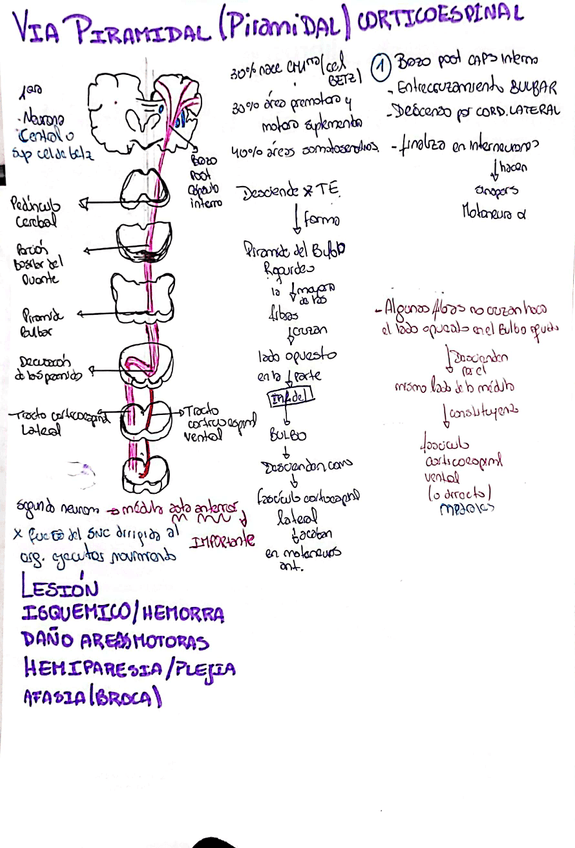 VIA PIRAMIDAL (PiramiDAL) CORTICOESPINAL
1era
- Neurona
Central o
sup cel de betz
Brazo
Post
Capsula
interna
Pedúnculo
Cerebral
Porción
Basilar del
Puente
Piramide
Bulbar
Decusación
de las piramides
Tracto corticoespinal
Lateral
Tracto
corticoespinal
ventral
30% nace CM1 (cel
BETZ)
30% área premotora y
motora suplementa
40% áreas somatosensitivas
Desciende x TE.
forma
Piramide del Bulbo
Raquideo
la mayoria
de las
fibras
cruzan
lado opuesto
en la parte
Inf. del
BULBO
Descienden como
fascículo corticoespinal
lateral
acaban
en motoneuronas
ant.
1 Brazo post CAPS interna
- Entrecruzamiento BULBAR
- Descenso por CORD. LATERAL
- finaliza en interneuronas
hacen
sinapsis
Motoneurona α
- Algunas fibras no cruzan hacia
el lado opuesto en el Bulbo
Descienden
por el
mismo lado de la médula
constituyens
fascículo
corticoespinal
ventral
(o directo)
segunda neurona → médula asta anterior
IMPORTANTE
x fuera del SNC dirigida al
org. ejecutor movimiento
LESIÓN
ISQUEMICO/HEMORRA
DAÑO AREAS MOTORAS
HEMIPARESIA/PLEJIA
AFASIA (BROCA)